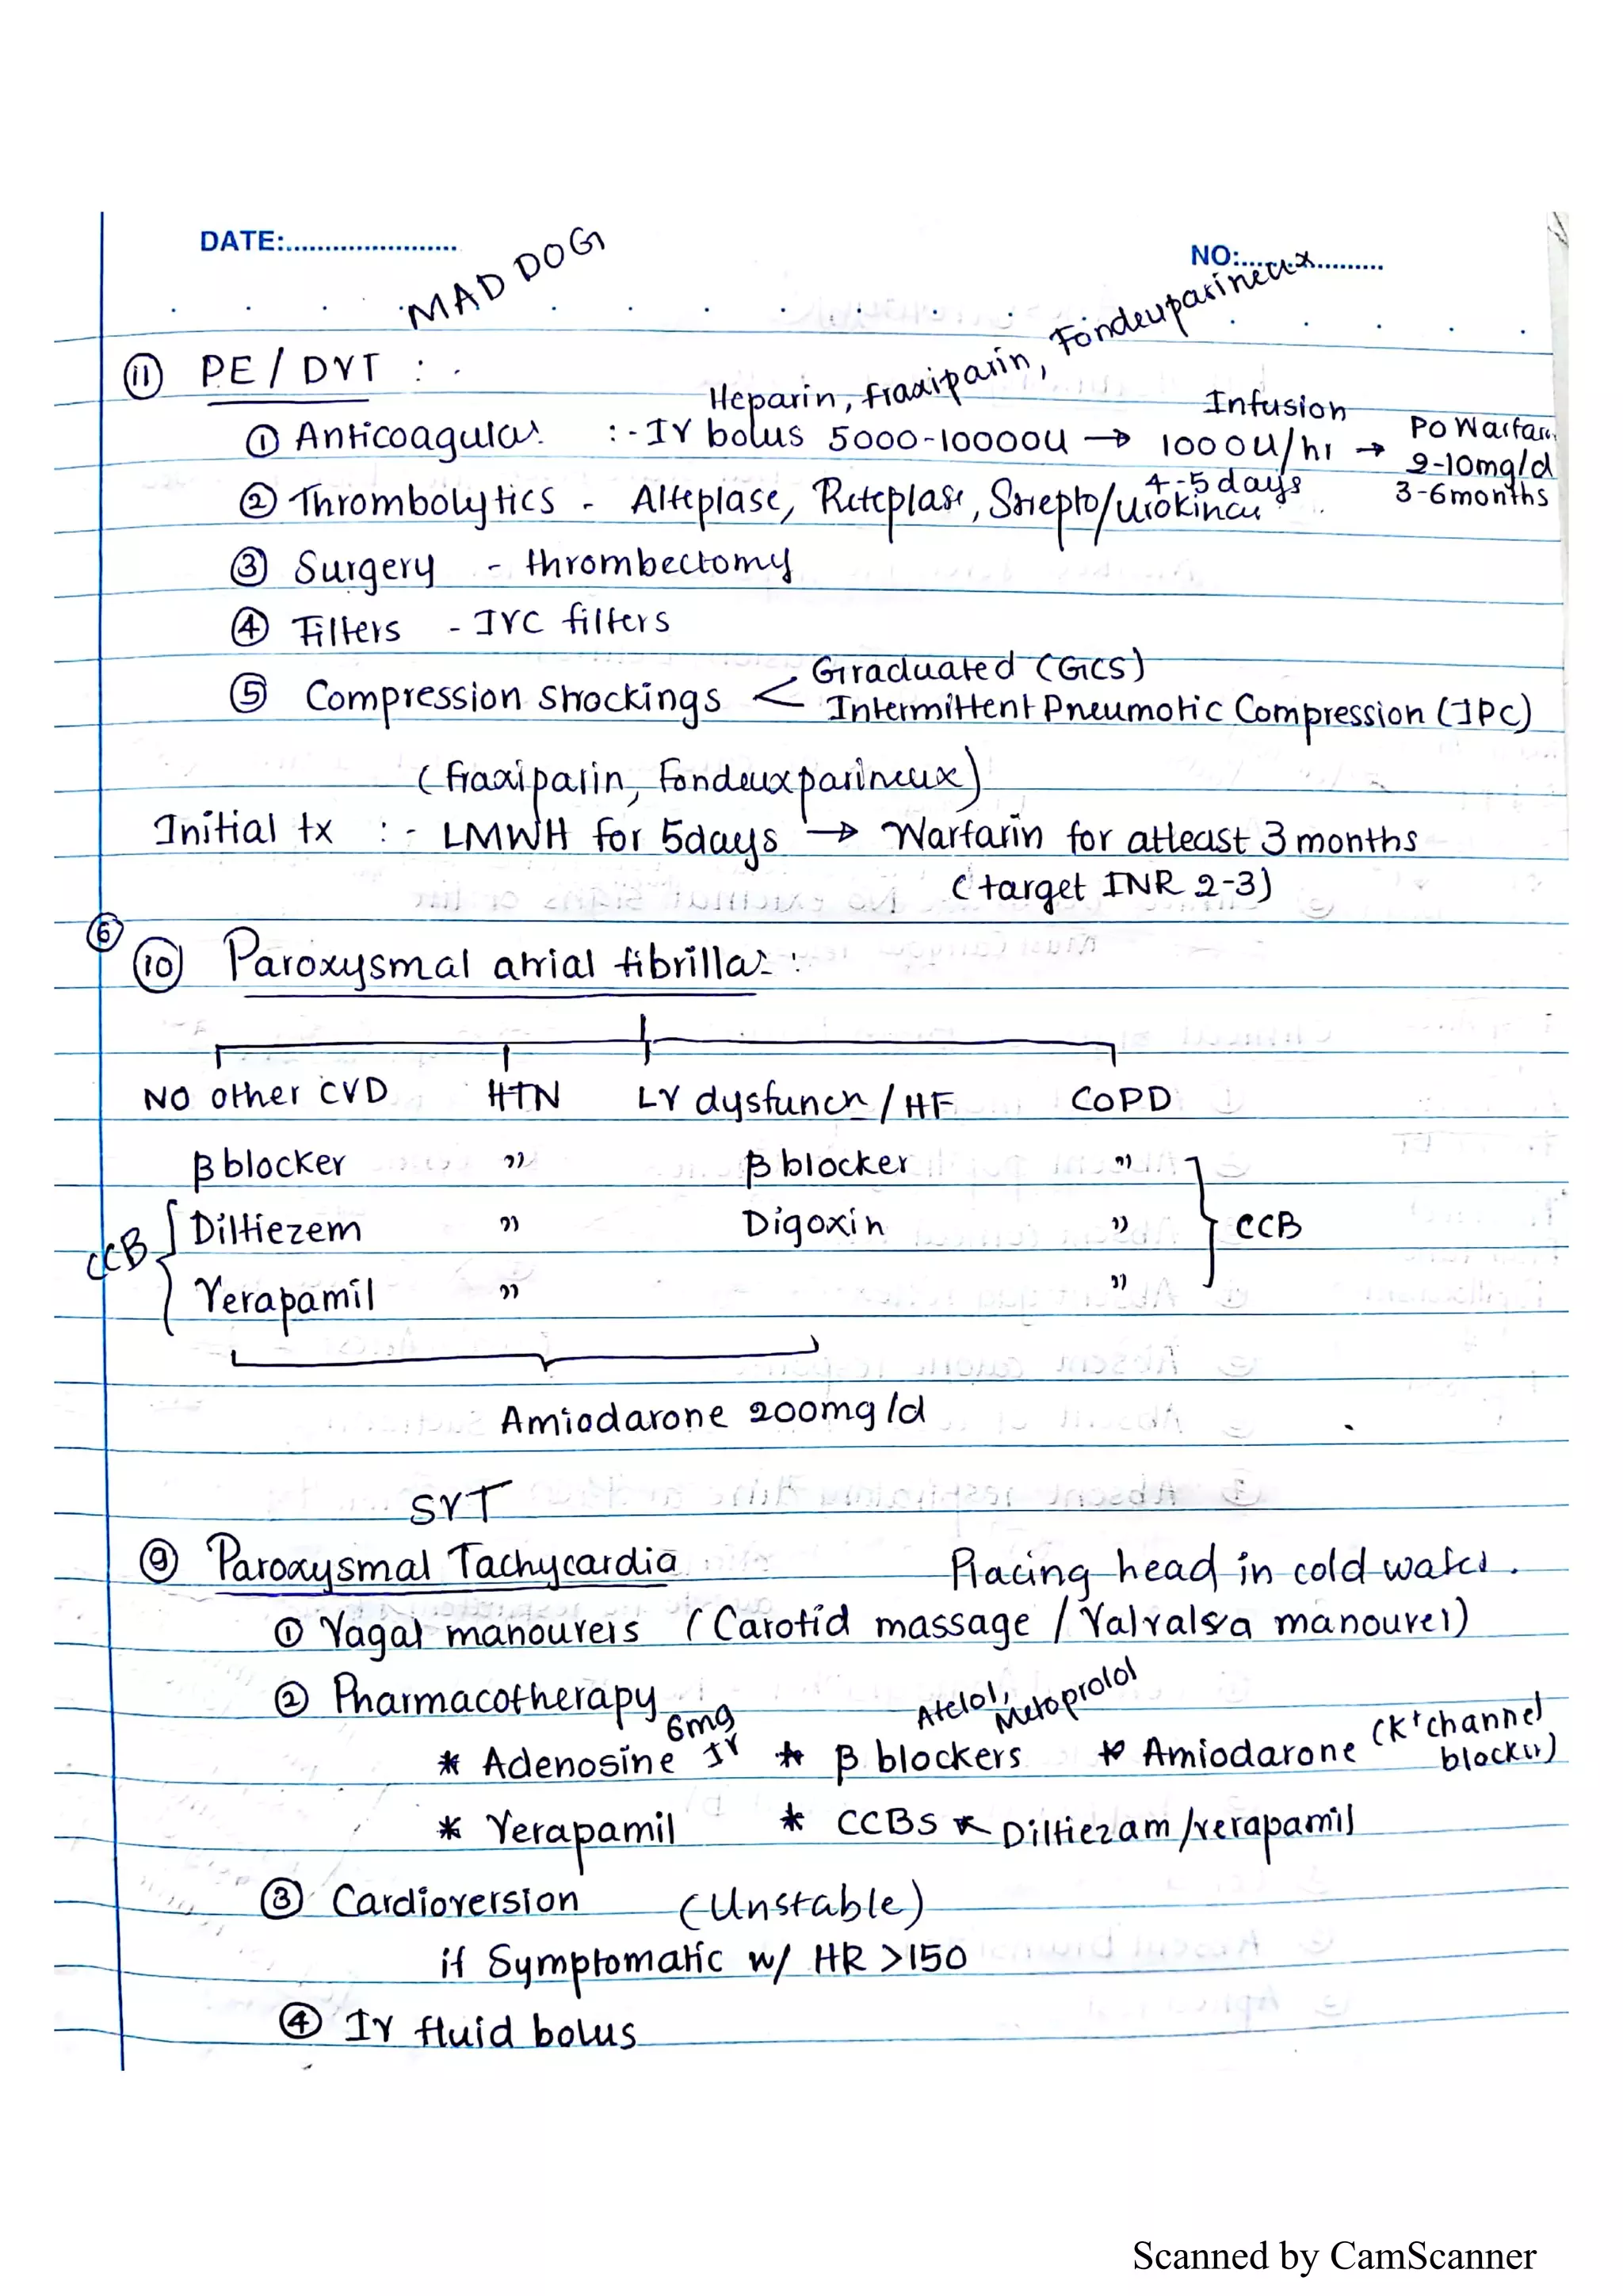 DATE:........................
NO:........................
MAD DOG
⑪ PE / DVT :
Heparin, fraxiparin, Fondeuparineux
① Anticoagula: :- IV bolus 5000-10000U → Infusion 1000U/hr → PO Warfarin
4-5 days 2-10mg/d
3-6 months
② Thrombolytics - Alteplase, Reteplase, Strepto/urokinase
③ Surgery - thrombectomy
④ Filters - IVC filters
⑤ Compression Stockings < Graduated (GCS)
Intermittent Pneumotic Compression (IPC)
(fraxiparin, Fondeuxparineux)
Initial tx :- LMWH for 5days → Warfarin for atleast 3 months
(target INR 2-3)
⑥
⑩ Paroxysmal atrial fibrilla: :
No other CVD HTN LV dysfuncn / HF COPD
β blocker " β blocker "
CCB { Diltiezem " Digoxin " } CCB
Verapamil " "
Amiodarone 200mg/d
SVT
⑨ Paroxysmal Tachycardia
Placing head in cold water.
① Vagal manouvers (Carotid massage / Valvalsva manouver)
② Pharmacotherapy
6mg IV Atelol, Metoprolol
* Adenosine * β blockers * Amiodarone (K⁺ channel blocker)
* Verapamil * CCBs ↖ Diltiezam /verapamil
③ Cardioversion (Unstable)
if Symptomatic w/ HR >150
④ IV fluid bolus
Scanned by CamScanner